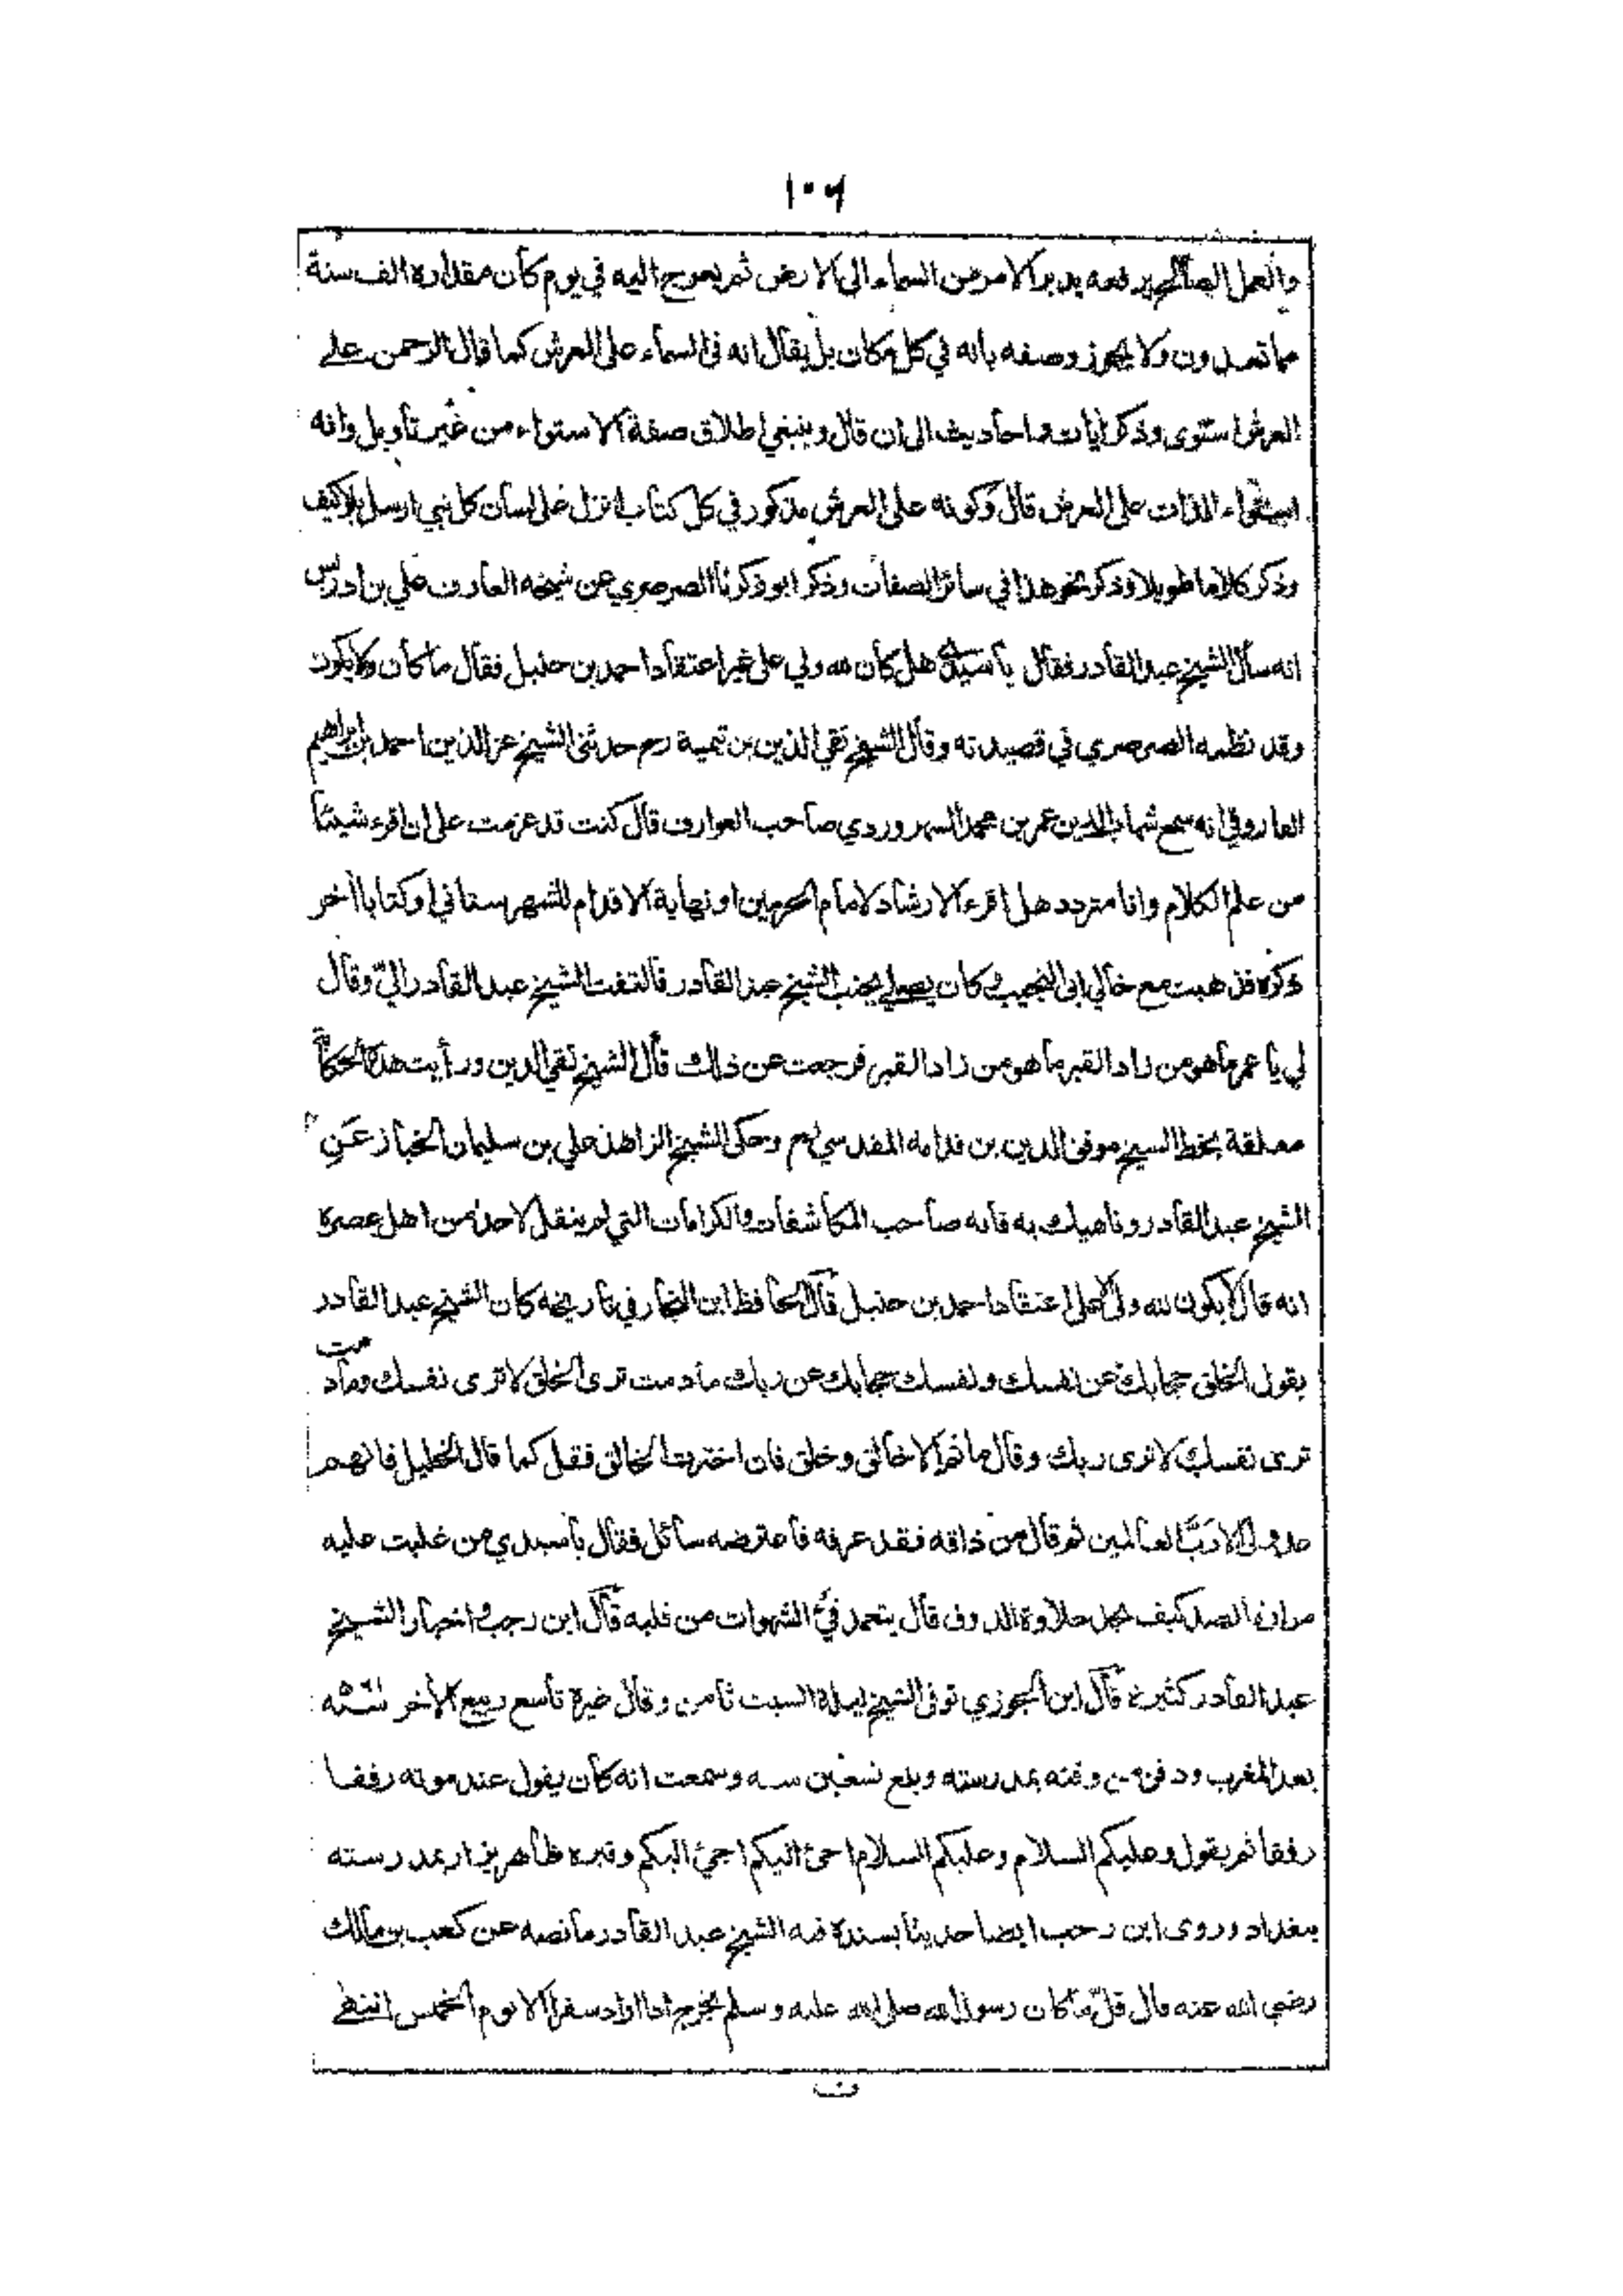 ١٠٦
والعمل الصالح يرفعه يدبر الامر من السماء الى الارض ثم يعرج اليه في يوم كان مقداره الف سنة
مما تعدون ولا يجوز وصفه بانه في كل مكان بل يقال انه في السماء على العرش كما قال الرحمن على
العرش استوى وذكر ايات واحاديث الى ان قال وينبغي اطلاق صفة الاستواء من غير تأويل وانه
استواء الذات على العرش قال وكونه على العرش مذكور في كل كتاب انزل على لسان كل نبي ارسل بلا كيف
وذكر كلاما طويلا وذكر نحو هذا في سائر الصفات وذكر ابو ذكريا الصرصري عن شيخه العارف علي بن ادريس
انه سأل الشيخ عبد القادر فقال يا سيدي هل كان لله ولي على غير اعتقاد احمد بن حنبل فقال ما كان ولا يكون
وقد نظمه الصرصري في قصيدته وقال الشيخ تقي الدين بن تيمية رح حدثني الشيخ عز الدين احمد بن ابراهيم
الفاروقي انه سمع شهاب الدين عمر بن محمد السهروردي صاحب العوارف قال كنت قد عزمت على ان اقرء شيئا
من علم الكلام وانا متردد هل اقرء الارشاد لامام الحرمين او نهاية الاقدام للشهرستاني او كتابا آخر
ذكره فذهبت مع خالي ابي النجيب وكان يصلي بجنب الشيخ عبد القادر فالتفت الشيخ عبد القادر الي وقال
لي يا عمر ما هو من زاد القبر ما هو من زاد القبر فرجعت عن ذلك قال الشيخ تقي الدين ورأيت هذه الحكاية
معلقة بخط الشيخ موفق الدين بن قدامه المقدسي رح وحكى الشيخ الزاهد علي بن سليمان الخباز عن
الشيخ عبد القادر وناهيك به فانه صاحب المكاشفات والكرامات التي لم ينقل لاحد من اهل عصره
انه قال لا يكون لله ولي الا على اعتقاد احمد بن حنبل قال الحافظ ابن النجار في تاريخه كان الشيخ عبد القادر
يقول الخلق حجابك عن نفسك ونفسك حجابك عن ربك ما دمت ترى الخلق لا ترى نفسك وما دمت
ترى نفسك لا ترى ربك وقال ما ثم الا خالق وخلق فان اخترت الخالق فقل كما قال الخليل فانهم
عدو لي الا رب العالمين ثم قال من ذاقه فقد عرفه فاعترضه سائل فقال يا سيدي من غلبت عليه
مرارة الصد كيف يجد حلاوة الذوق قال يتعمد في الشهوات من قلبه قال ابن رجب واخبار الشيخ
عبد القادر كثيرة قال ابن الجوزي توفى الشيخ ليلة السبت ثامن وقال غيره تاسع ربيع الآخر
بعد المغرب ودفن من وقته بمدرسته وبلغ تسعين سنه وسمعت انه كان يقول عند موته رفقا
رفقا ثم يقول وعليكم السلام وعليكم السلام اجئ اليكم اجئ اليكم وقبره ظاهر يزار بمدرسته
ببغداد وروى ابن رجب ايضا حديثا بسنده فيه الشيخ عبد القادر ما نصه عن كعب بن مالك
رضي الله عنه قال قل ما كان رسول الله صلى الله عليه وسلم يخرج اذا اراد سفرا الا يوم الخميس انتهى